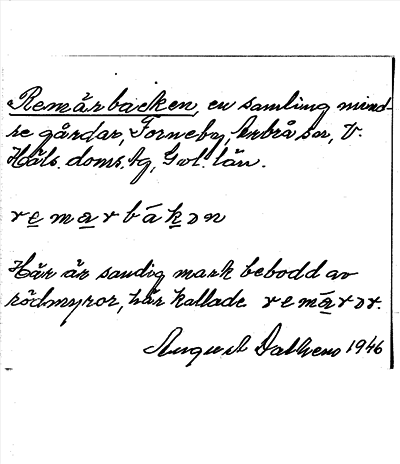 Remårbacken, en samling mind-
re gårdar, Torneby, Enbrå sn, V.
Häls. doms. tg, Gvl. län.
remarbákɔn
Här är sandig mark bebodd av
rödmyror, här kallade remárɔr.
August Dalhens 1946